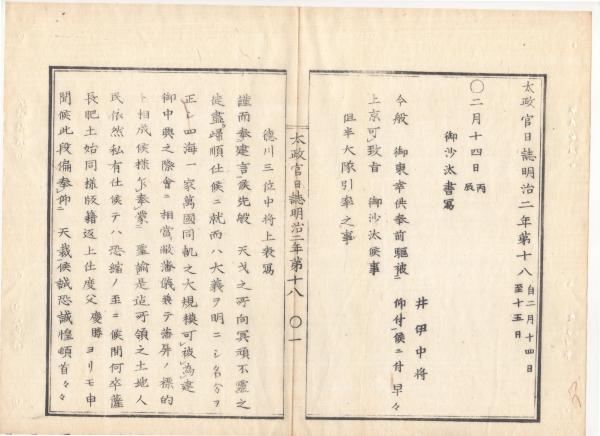 太政官日誌明治二年第十八 自二月十四日至十五日
〇二月十四日 丙辰
御沙汰書写
井伊中将
今般 御東幸供奉前駆被 仰付候ニ付早々
上京可致旨 御沙汰候事
但半大隊引率之事
太政官日誌明治二年第十八 〇一
徳川三位中将上表写
謹而奉建言候先般 天戈之所向冥頑不霊之
徒盡ク帰順仕候ニ就而ハ大義ヲ明ニシ名分ヲ
正シ四海一家萬國同軌之大規模可被為建
御中興之際會ニ相當敝藩儀兼テ藩屏ノ標的
ト相成候様乍奉蒙 聖諭是迄所領之土地人
民依然私有仕候テハ恐縮ノ至ニ候間何卒薩
長肥土始同様版籍返上仕度父 慶勝ヨリモ申
聞候此段偏奉仰 天裁候誠恐誠惶頓首々々